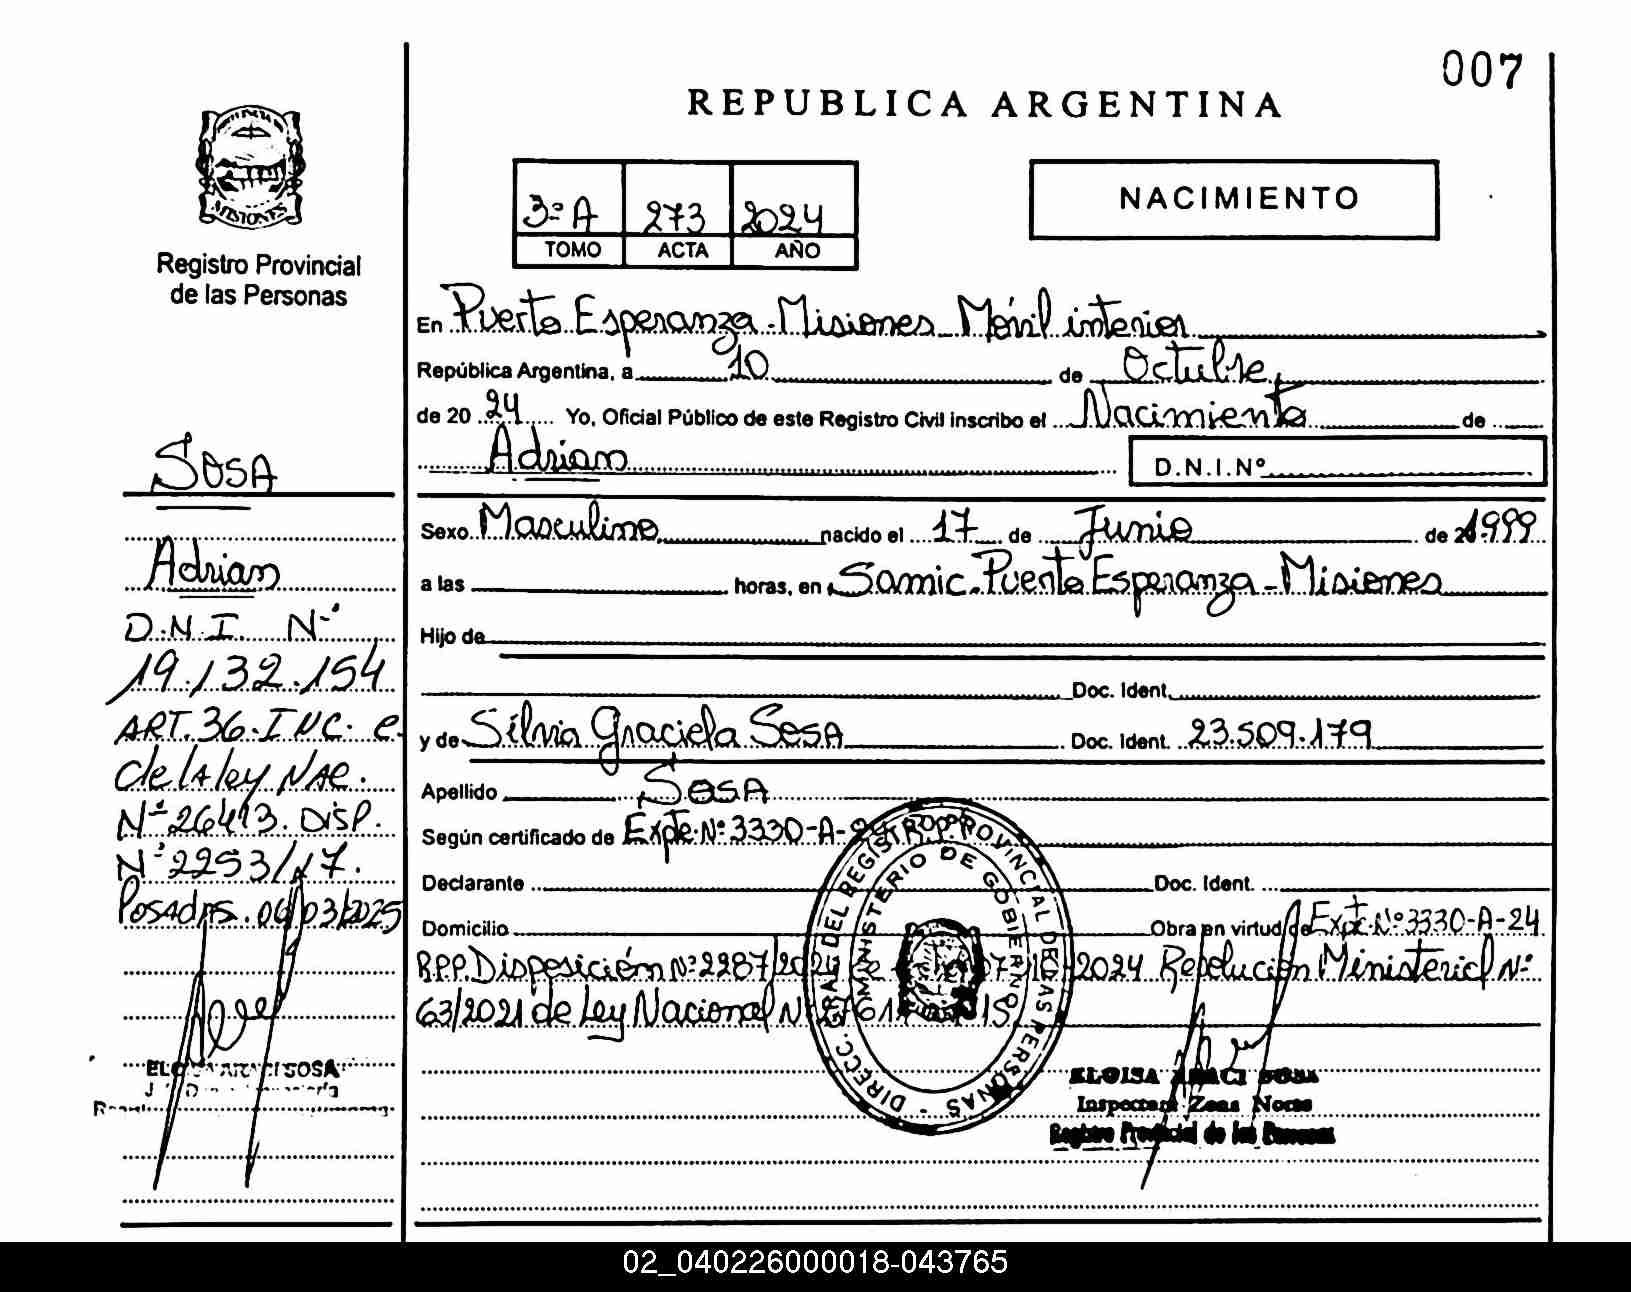 007
REPUBLICA ARGENTINA
MISIONES
Registro Provincial
de las Personas
3º A 273 2024
TOMO ACTA AÑO
NACIMIENTO
En Puerto Esperanza - Misiones Móvil interior
República Argentina, a 10 de Octubre
de 2024 Yo, Oficial Público de este Registro Civil inscribo el Nacimiento de
Adrian D.N.I.Nº
Sexo Masculino nacido el 17 de Junio de 1999
a las horas, en Samic. Puerto Esperanza - Misiones
Hijo de
Doc. Ident.
y de Silvia Graciela Sosa Doc. Ident. 23.509.179
Apellido SOSA
Según certificado de Expte. Nº 3330-A-
Declarante Doc. Ident.
Domicilio Obra en virtud de Expte Nº 3330-A-24
R.P.P. Disposición Nº 2287/2024 2024 Resolución Ministerial Nº
63/2021 de Ley Nacional Nº
DIRECC. GRAL DEL REGISTRO PROVINCIAL DE LAS PERSONAS -
MINISTERIO DE GOBIERNO
ELOISA ARACI SOSA
Inspectora Zona Norte
Registro Provincial de las Personas
SOSA
Adrian
D.N.I. Nº
19.132.154
ART. 36. INC. e
de la ley NAC.
Nº 26413. DISP.
Nº 2253/17.
Posadas. 06/03/2025
SOSA
02_040226000018-043765